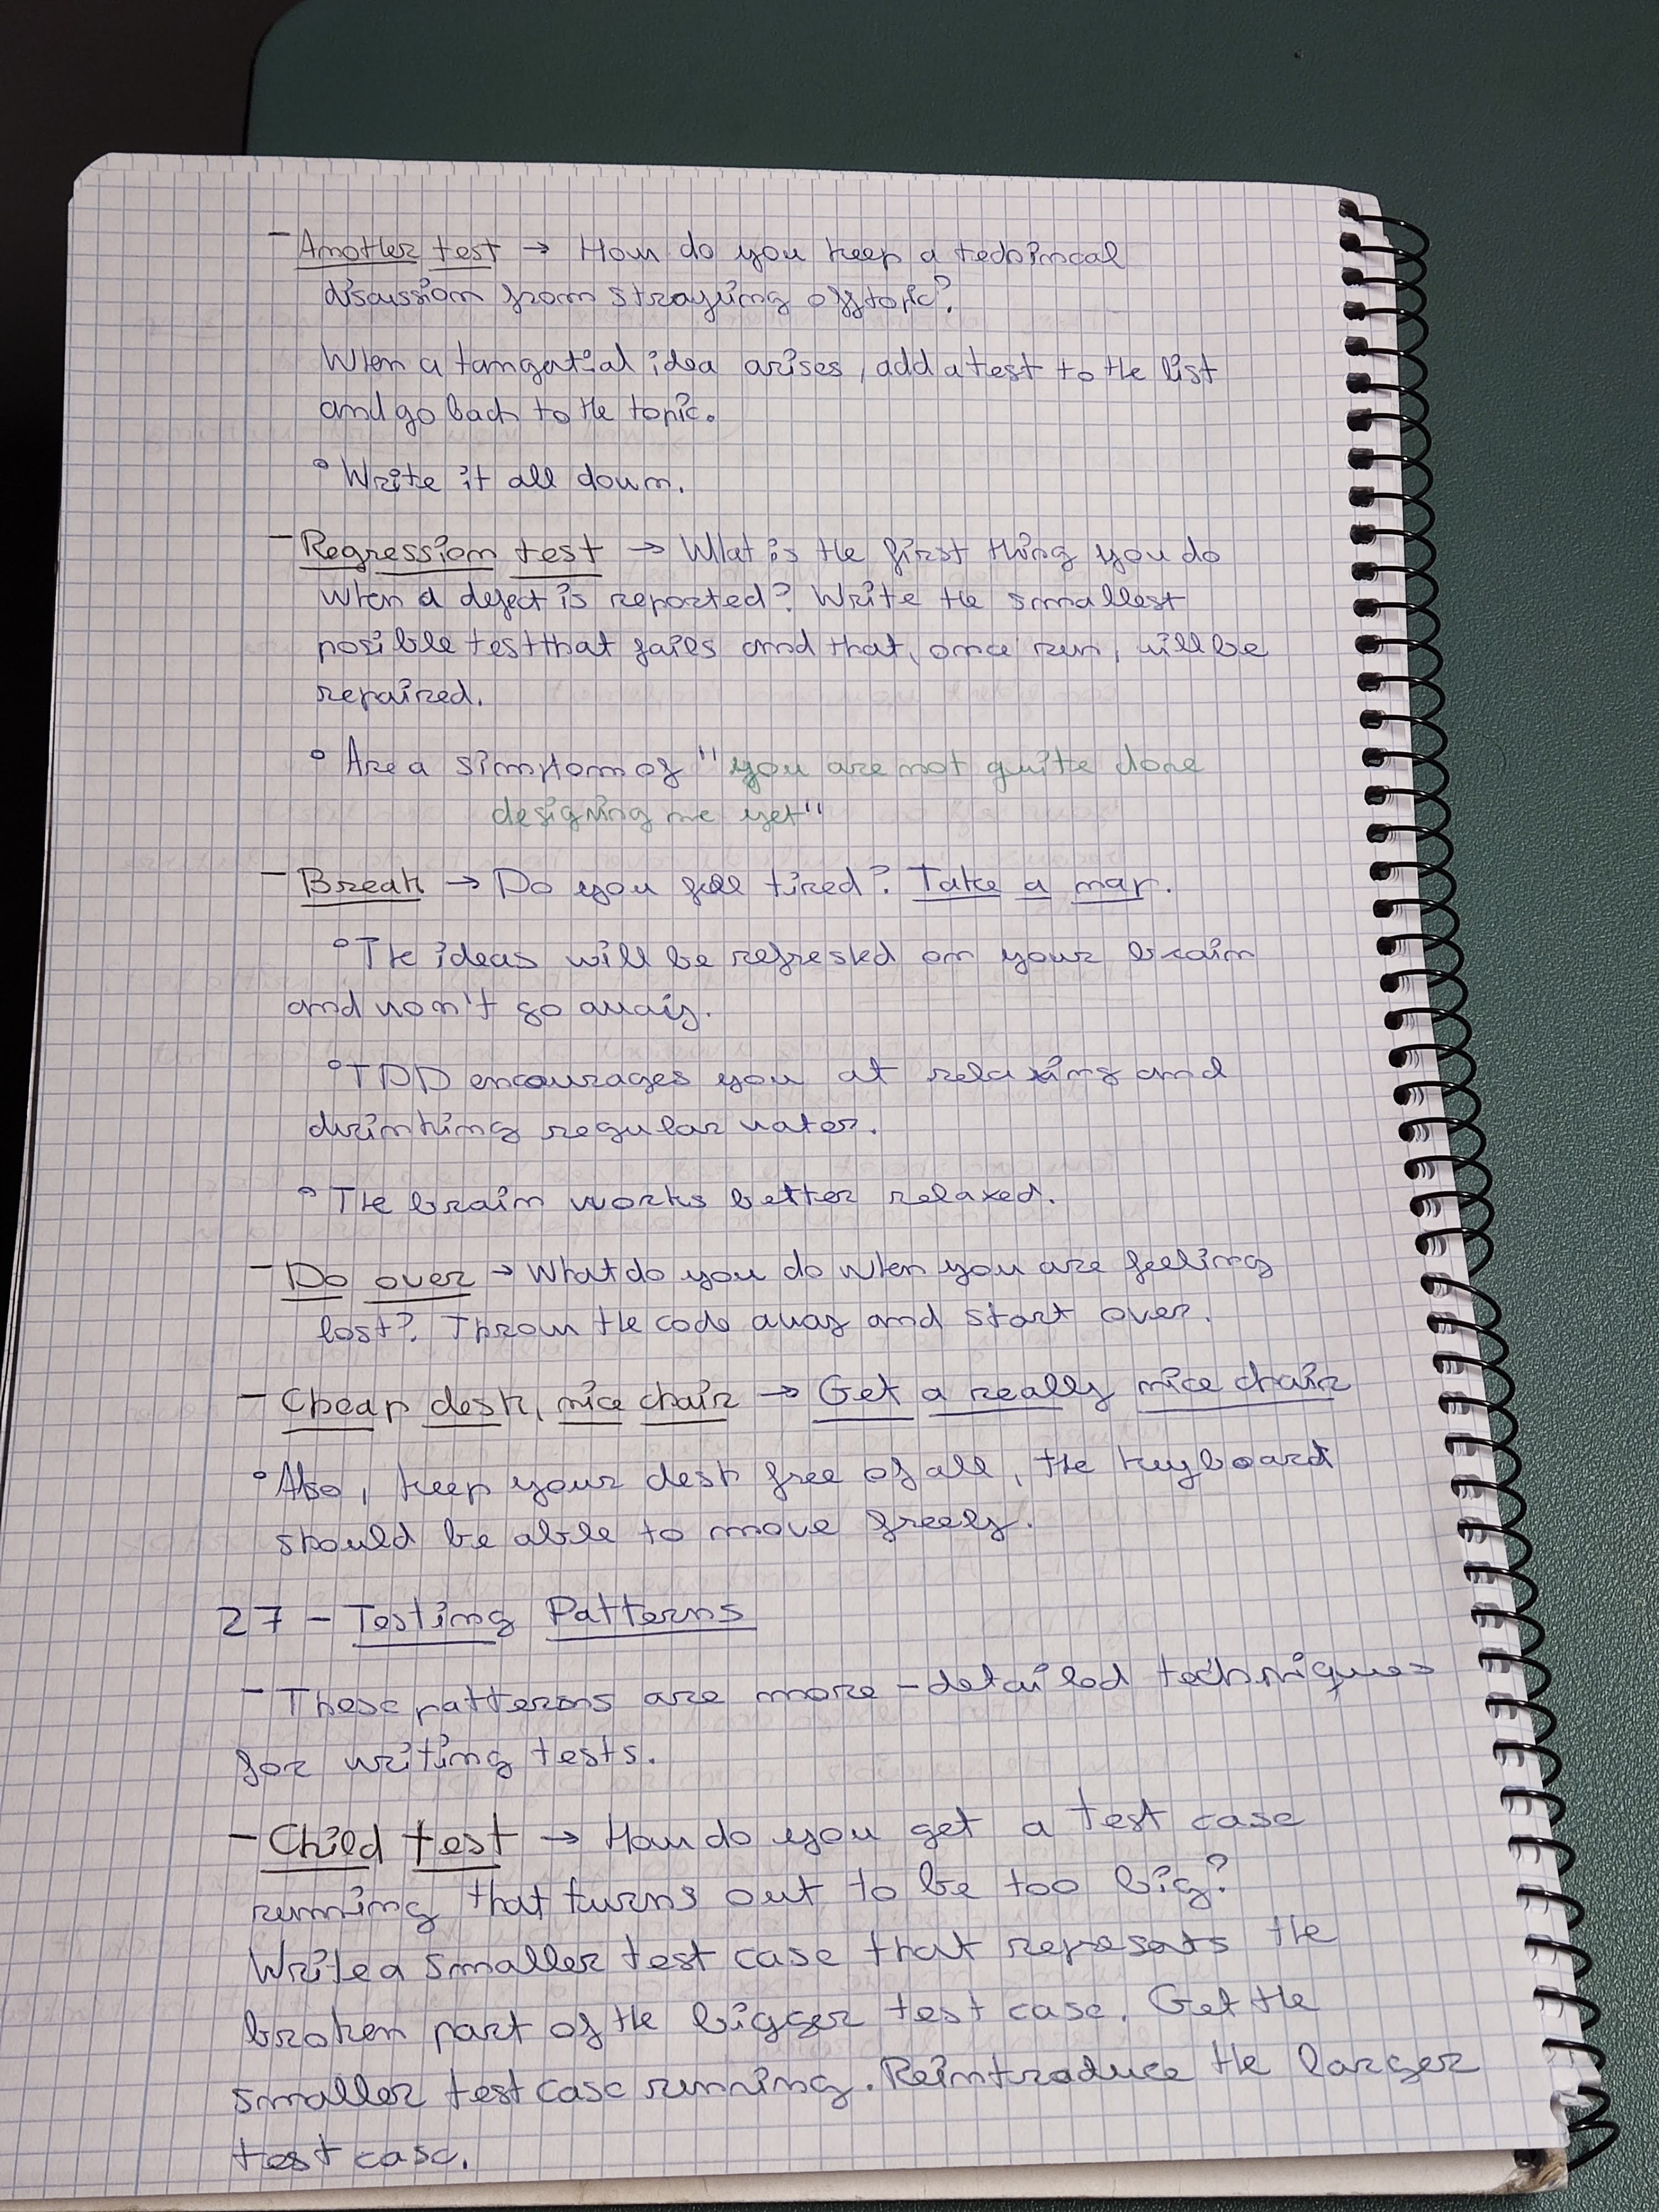 - Another test → How do you keep a techincal
discussion from straying offtopic?
When a tangatial idea arises, add a test to the list
and go back to the topic.
° Write it all down.
- Regression test → What is the first thing you do
when a defect is reported? Write the smallest
posible test that fails and that, once run, will be
repaired.
° Are a simptom of "you are not quite done
designing me yet"
- Break → Do you fell tired? Take a nap.
° The ideas will be refreshed on your brain
and won't go away.
° TDD encourages you at relaxing and
drinking regular water.
° The brain works better relaxed.
- Do over → What do you do when you are feeling
lost? Throw the code away and start over.
- Cheap desk, nice chair → Get a really nice chair
° Also, keep your desk free of all, the keyboard
should be able to move freely.
27 - Testing Patterns
- These patterns are more-detailed techniques
for writing tests.
- Child test → How do you get a test case
running that turns out to be too big?
Write a smaller test case that represats the
broken part of the bigger test case. Get the
smaller test case running. Reintroduce the larger
test case.